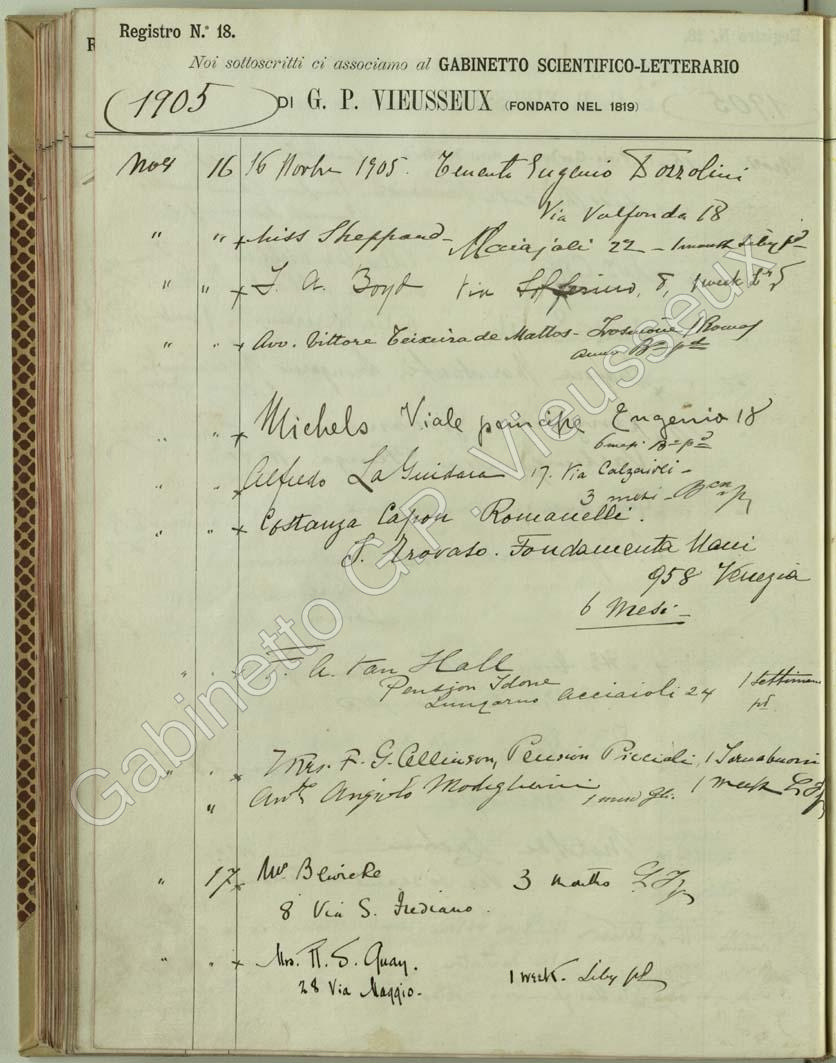 Registro N.° 18.
Noi sottoscritti ci associamo al GABINETTO SCIENTIFICO-LETTERARIO
1905 DI G. P. VIEUSSEUX (FONDATO NEL 1819)
16 16 Novbre 1905. Tenente Eugenio Pozzolini
Via Valfonda 18
" " x Miss Sheppard - Acciajoli 22 - 1 month
" " x Boyd Via Solferino, 8, 1 week
" " x Avv. Vittore Teixeira de Mattos - Frosinone (Roma)
anno
" " x Michels Viale principe Eugenio 18
6 mesi
" x Alfredo La Guidara 17. Via Calzaioli -
3 mesi -
" " x Costanza Capon Romanelli.
S. Trovaso. Fondamenta Nani
958 Venezia
6 Mesi -
" " x F. A. Van Hall
Pension Idone
Lungarno Acciaioli 24 1 settimana
pd
" " x Mrs. F. G. Collinson, Pension Piccioli, 1 Tornabuoni
" Angiolo Modigliani 1 mese
" 17 x 3 months
8 Via S. Frediano.
" " x Mrs. Quay. 1 week.
28 Via Maggio.
Gabinetto G.P. Vieusseux